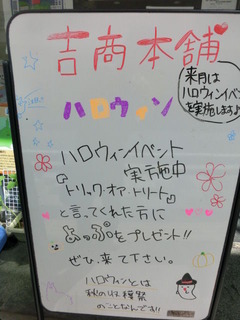 吉商本舗
来月は
ハロウィンイベント
を実施します♪
ハロウィン
ハロウィンイベント
実施中
『トリック・オア・トリート』
と言ってくれた方に
あっぷるをプレゼント!!
ぜひ来て下さい。
ハロウィンとは
秋の収穫祭
のことなんです!!